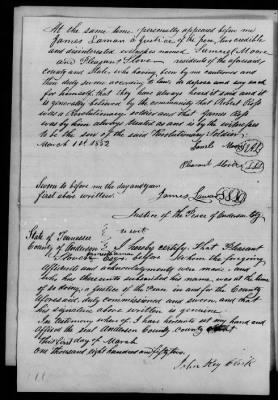 At the same time personally appeared before me
James Lamar a Justice of the peace, two credible
and disinterested witnesses named Samuel Moore
and Pleasant Stove residents of the aforesaid
county and State, who having been by me cautioned and
then duly sworn according to law to depose and say each
for himself, that they have always heard it said and it
is generally believed by the community that Robert Ross
was a Revolutionary soldier and that James Ross
was by him always treated as and is by the witnesses
to be the son of the said Revolutionary Soldier
March 1st 1852
Moore
Pleasant
Sworn to before me the day and year
first above written
James Lamar
Justice of the Peace of Anderson Cty.
State of Tennessee
County of Anderson I hereby certify, That Pleasant
before whom the foregoing
Affidavit and acknowledgements were made and
who has thereunto subscribed his name, was at the time
of so doing, a Justice of the Peace in and for the County
Aforesaid, duly commissioned and sworn, and that
his signature above written is genuine
In testimony where of, I have hereunto set my hand and
Affixed the seal Anderson County, county
this first day of March
One thousand eight hundred and fifty two
John Key